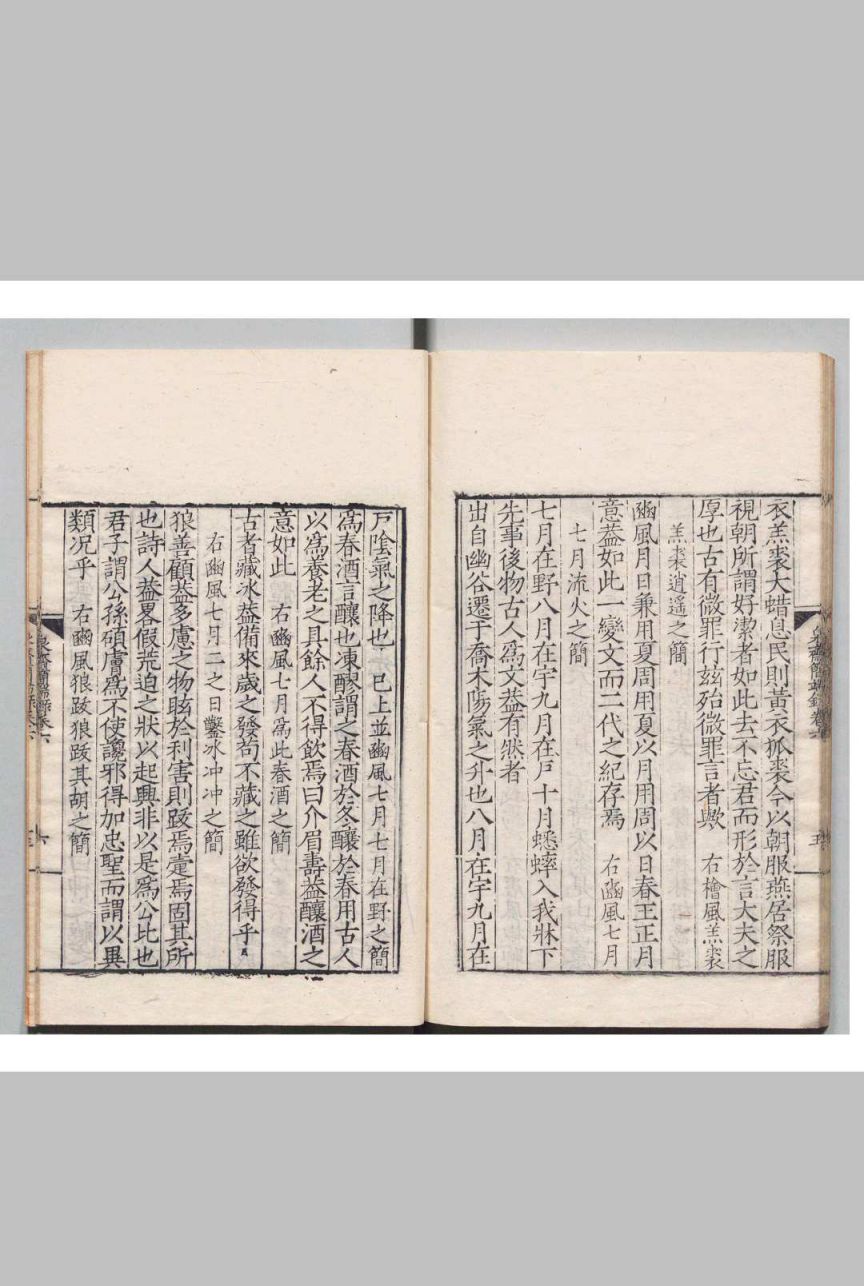 衣羔裘大蜡息民則黃衣狐裘今以朝服燕居祭服
視朝所謂好潔者如此去不忘君而形於言大夫之
厚也古有微罪行玆殆微罪言者歟　右檜風羔裘
羔裘逍遙之簡
豳風月日兼用夏周用夏以月用周以日春王正月
意葢如此一變文而二代之紀存焉　右豳風七月
七月流火之簡
七月在野八月在宇九月在戸十月蟋蟀入我牀下
先事後物古人爲文葢有然者
出自幽谷遷于喬木陽氣之升也八月在宇九月在
戸陰氣之降也　已上並豳風七月七月在野之簡
爲春酒言釀也凍醪謂之春酒於冬釀於春用古人
以爲養老之具餘人不得飮焉曰介眉壽葢釀酒之
意如此　右豳風七月爲此春酒之簡
古者藏冰葢備來歲之發茍不藏之雖欲發得乎
右豳風七月二之日鑿冰冲冲之簡
狼善顧葢多慮之物眩於利害則跋焉疐焉固其所
也詩人葢畧假荒迫之狀以起興非以是爲公比也
君子謂公孫碩膚爲不使讒邪得加忠聖而謂以異
類况乎　右豳風狼跋狼跋其胡之簡